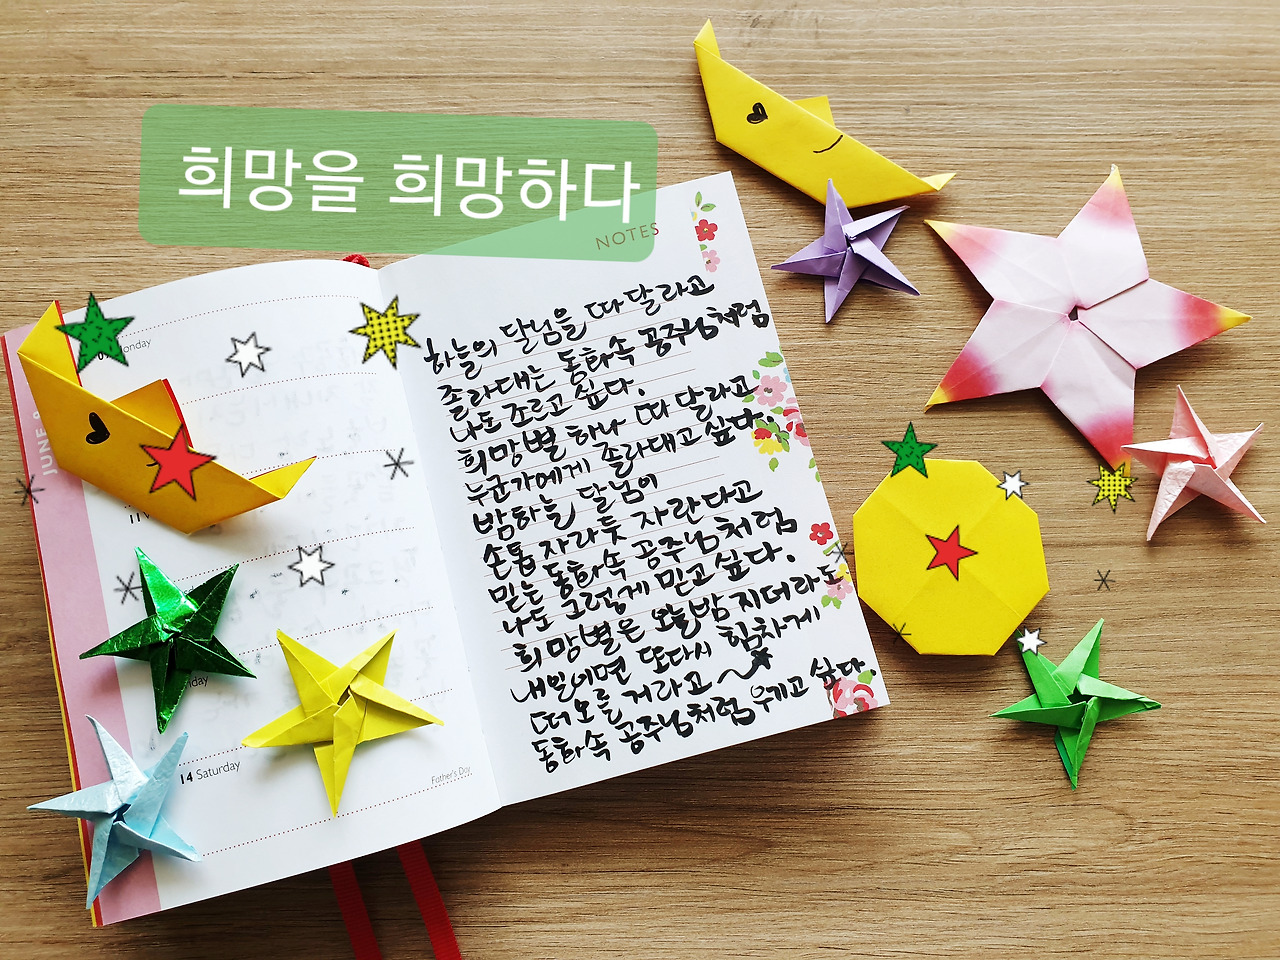 희망을 희망하다
NOTES
하늘의 달님을 따 달라고
졸라대는 동화속 공주님처럼
나도 조르고 싶다.
희망별 하나 따 달라고
누군가에게 졸라대고 싶다.
밤하늘 달님이
손톱 자라듯 자란다고
믿는 동화속 공주님처럼
나도 그렇게 믿고 싶다.
희망별은 오늘밤 지더라도
내일이면 또다시 힘차게
떠오를 거라고
동화속 공주님처럼 우기고 싶다.
JUNE
Monday
14 Saturday
Father's Day